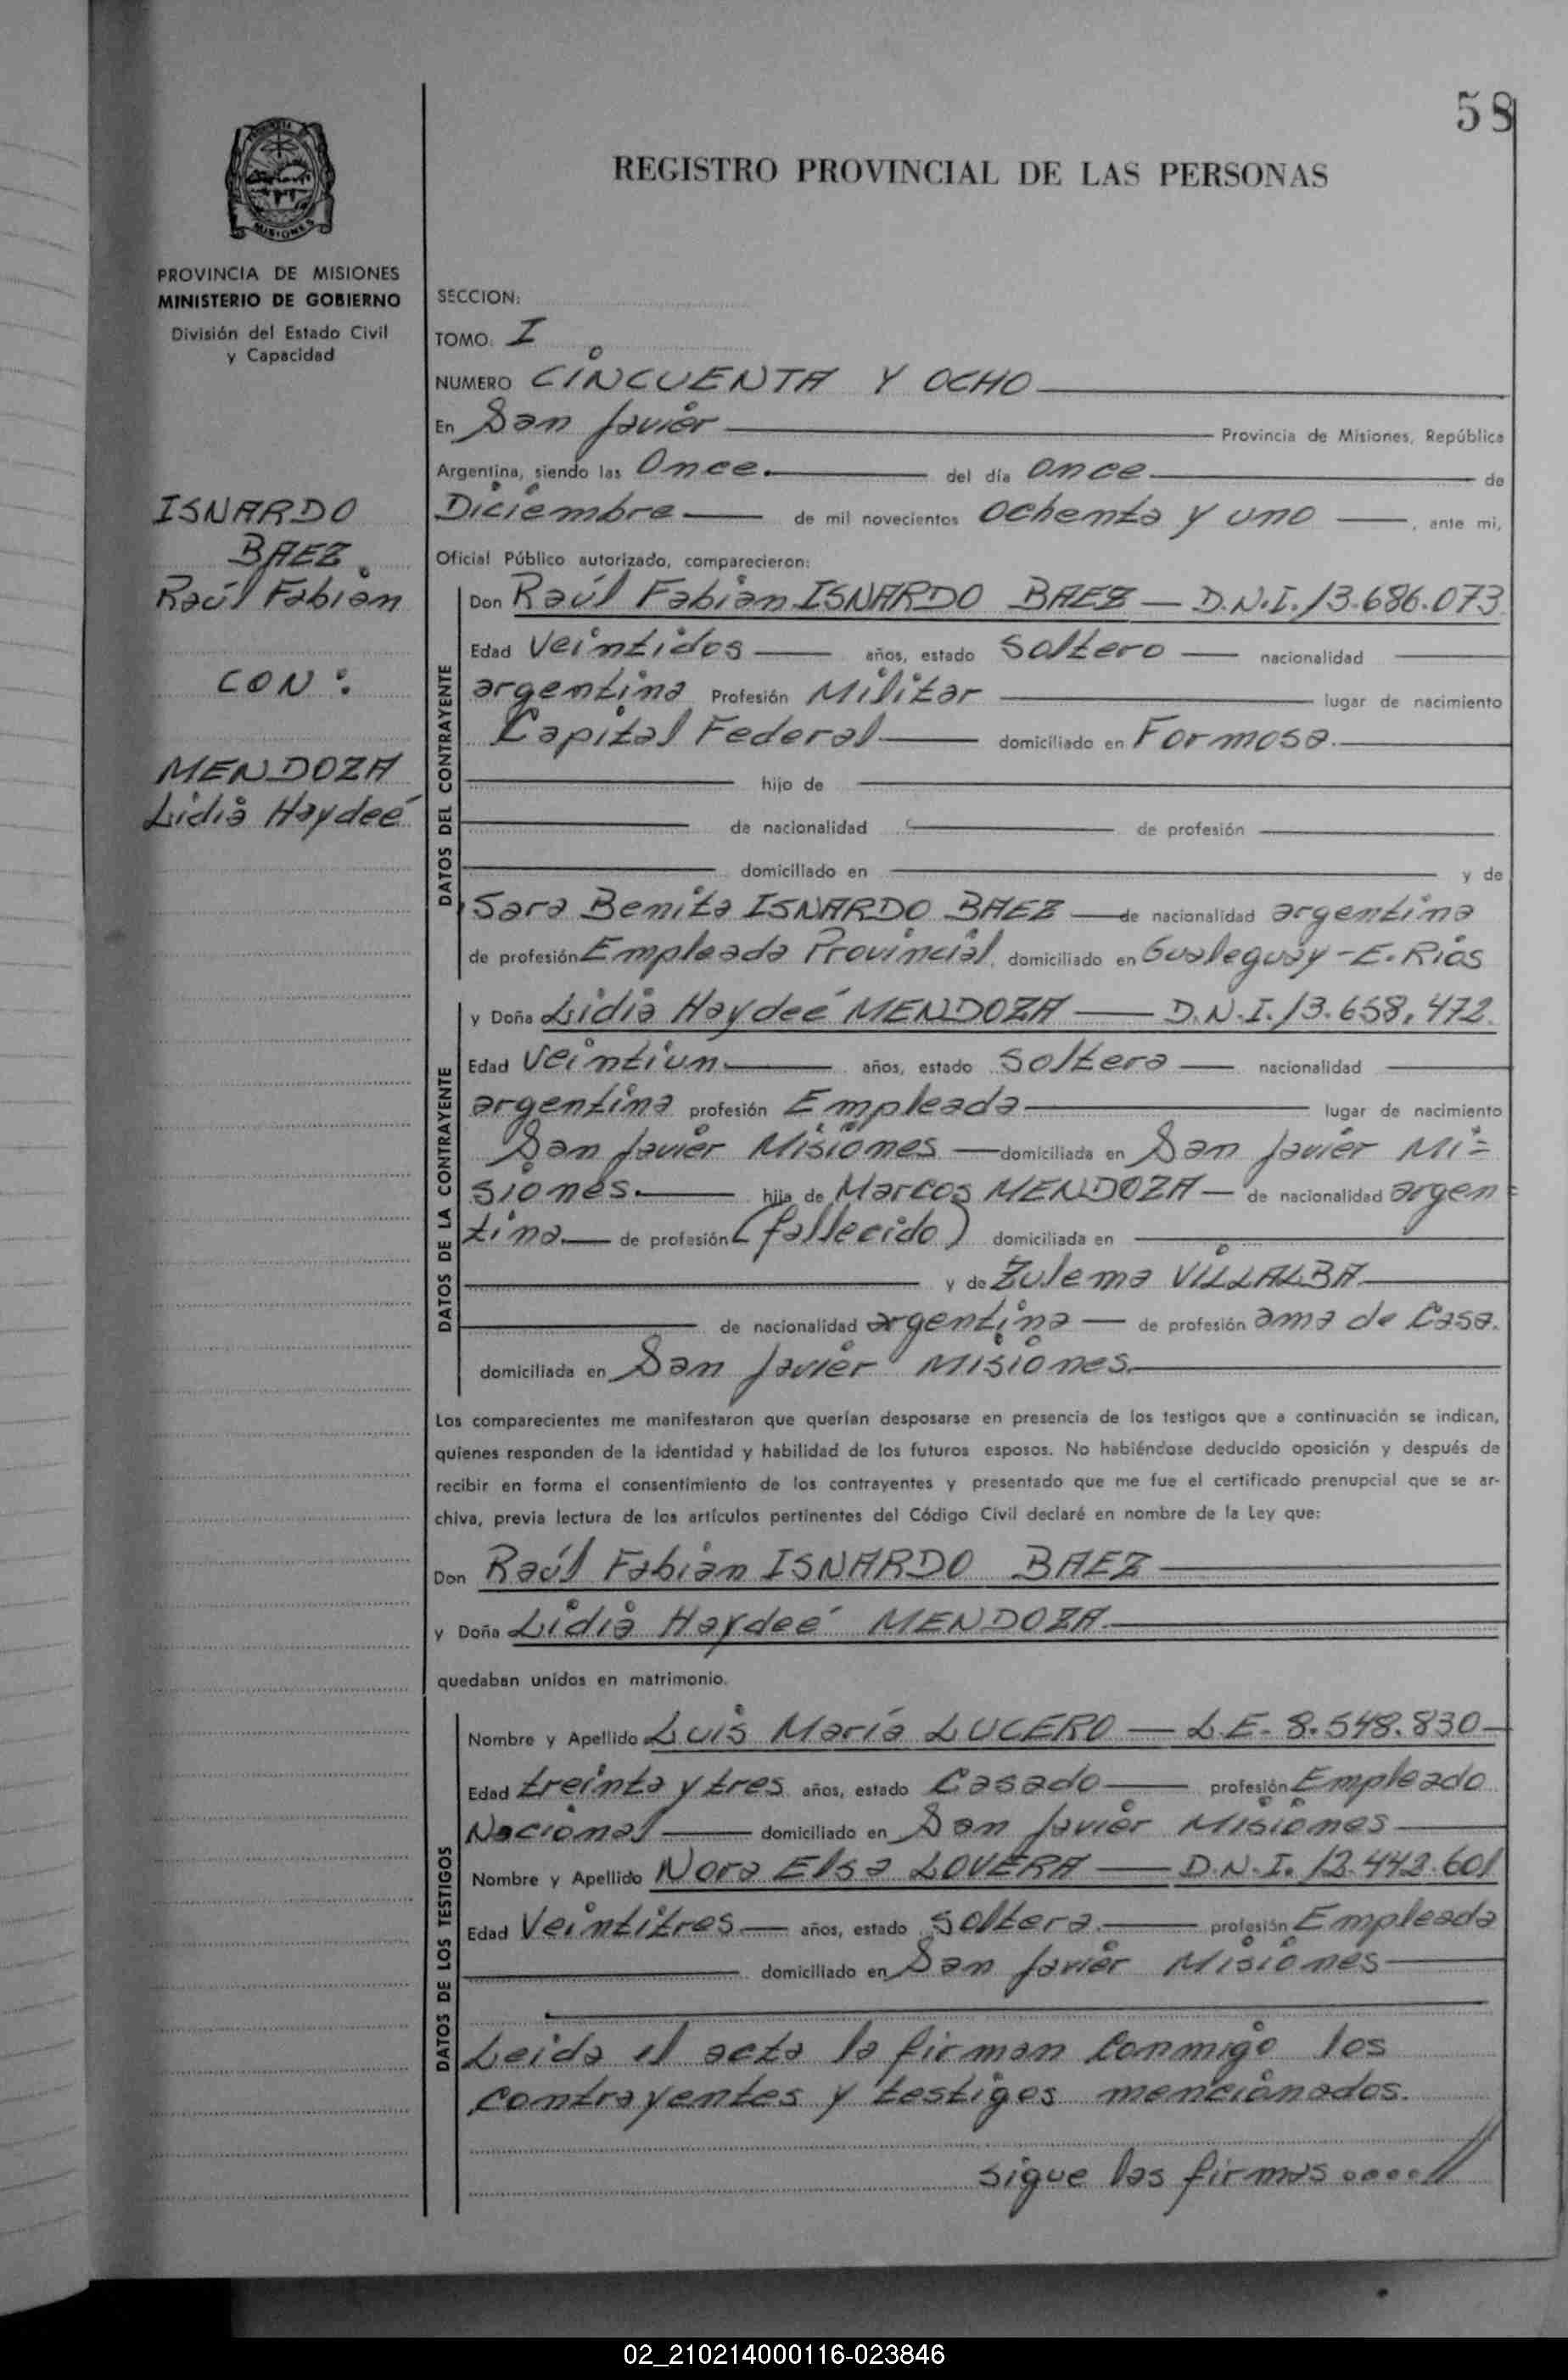 58
REGISTRO PROVINCIAL DE LAS PERSONAS
MISIONES
PROVINCIA DE MISIONES
MINISTERIO DE GOBIERNO
División del Estado Civil
y Capacidad
ISNARDO
BAEZ.
Raúl Fabián
CON:
MENDOZA
Lidia Haydeé
SECCION:
TOMO: I
NUMERO CINCUENTA Y OCHO
En San Javier Provincia de Misiones, República
Argentina, siendo las Once. del día once de
Diciembre de mil novecientos ochenta y uno, ante mi,
Oficial Público autorizado, comparecieron:
DATOS DEL CONTRAYENTE
Don Raúl Fabián ISNARDO BAEZ — D.N.I. 13.686.073
Edad veintidos años, estado soltero nacionalidad
argentina Profesión Militar lugar de nacimiento
Capital Federal domiciliado en Formosa.
hijo de
de nacionalidad de profesión
domiciliado en y de
Sara Benita ISNARDO BAEZ de nacionalidad argentina
de profesión Empleada Provincial. domiciliado en Gualeguay - E. Rios
DATOS DE LA CONTRAYENTE
y Doña Lidia Haydeé MENDOZA — D.N.I. 13.658.472.
Edad veintiun años, estado soltera nacionalidad
argentina profesión Empleada lugar de nacimiento
San Javier Misiones domiciliada en San Javier Mi=
siones. hija de Marcos MENDOZA de nacionalidad argen=
tina de profesión (fallecido) domiciliada en
y de Zulema VILLALBA
de nacionalidad argentina de profesión ama de Casa.
domiciliada en San Javier Misiones.
Los comparecientes me manifestaron que querían desposarse en presencia de los testigos que a continuación se indican,
quienes responden de la identidad y habilidad de los futuros esposos. No habiéndose deducido oposición y después de
recibir en forma el consentimiento de los contrayentes y presentado que me fue el certificado prenupcial que se ar-
chiva, previa lectura de los artículos pertinentes del Código Civil declaré en nombre de la Ley que:
Don Raúl Fabián ISNARDO BAEZ
y Doña Lidia Haydeé MENDOZA.
quedaban unidos en matrimonio.
DATOS DE LOS TESTIGOS
Nombre y Apellido Luis María LUCERO — L.E. 8.548.830
Edad treinta y tres años, estado Casado profesión Empleado
Nacional domiciliado en San Javier Misiones
Nombre y Apellido Nora Elsa LOVERA — D.N.I. 12.442.601
Edad Veintitres años, estado soltera. profesión Empleada
domiciliado en San Javier Misiones
Leida el acta la firman conmigo los
contrayentes y testigos mencionados.
sigue las firmas ....//
02_210214000116-023846